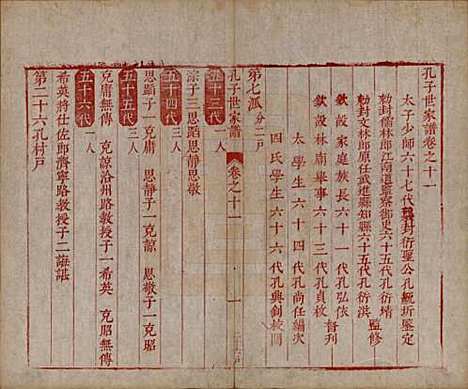 孔子世家譜卷之十一
太子少師六十七代襲封衍聖公孔毓圻鑒定
勅封儒林郎江南道監察御史六十五代孔衍
勅封文林郎原任武進縣知縣六十五代孔衍洪
監修
欽設家庭族長六十一代孔弘依
欽設林廟舉事六十三代孔貞枚
督刊
太學生六十四代孔尚任編次
四氏學生六十六代孔興釗校閱
第七派分二戶
孔子世家譜
卷之十一
一
五十三代 一人
宗子三思蹈思靜思敬
五十四代 三人
思蹈子一克庸 思靜子一克諒 思敬子一克昭
五十五代 三人
克庸無傳 克諒洺州路教授子一希英 克昭無傳
五十六代 一人
希英將仕佐郎濟寧路教授子二
第二十六孔村戶